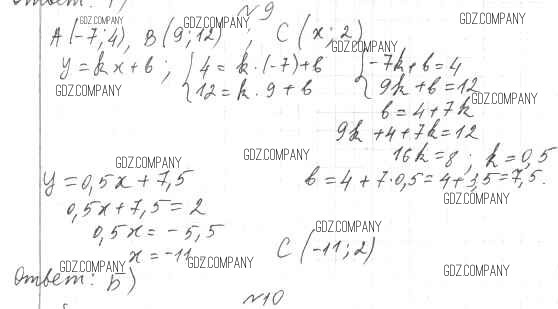 Ответ: Г)
№9
A(-7;4), B(9;12) ; C(x;2)
y = kx+b ; { 4 = k·(-7)+b { -7k+b=4
12 = k·9+b 9k+b=12
b=4+7k
9k+4+7k=12
16k=8; k=0,5
y=0,5x+7,5 b=4+7·0,5=4+3,5=7,5.
0,5x+7,5=2
0,5x=-5,5
x=-11 C(-11;2)
Ответ: Б)
№10
GDZ.COMPANY
GDZ.COMPANY
GDZ.COMPANY
GDZ.COMPANY
GDZ.COMPANY
GDZ.COMPANY
GDZ.COMPANY
GDZ.COMPANY
GDZ.COMPANY
GDZ.COMPANY
GDZ.COMPANY
GDZ.COMPANY
GDZ.COMPANY